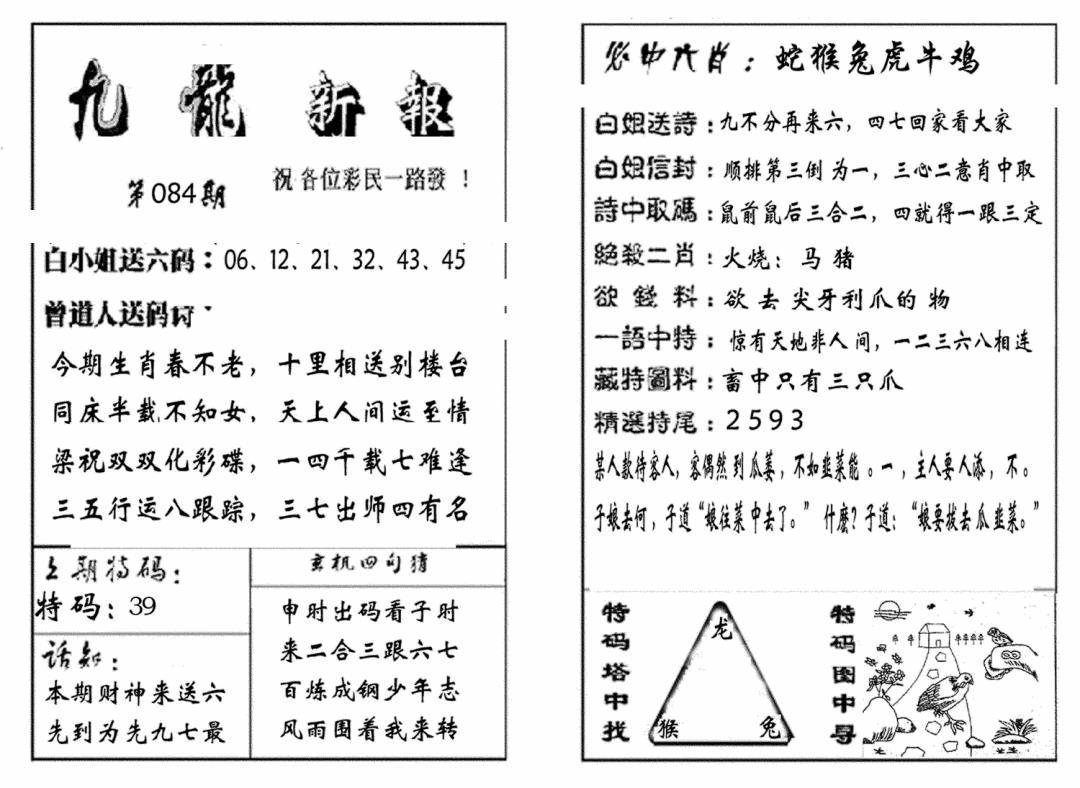 九龍新報
祝各位彩民一路發！
第084期
白小姐送六码：06、12、21、32、43、45
曾道人送码诗
今期生肖春不老，十里相送别楼台
同床半载不知女，天上人间运至情
梁祝双双化彩碟，一四千载七难逢
三五行运八跟踪，三七出师四有名
上期特码：
特码：39
话知：
本期财神来送六
先到为先九七最
玄机四句猜
申时出码看子时
来二合三跟六七
百炼成钢少年志
风雨围着我来转
必中六肖：蛇猴兔虎牛鸡
白姐送詩：九不分再来六，四七回家看大家
白姐信封：顺排第三倒为一，三心二意肖中取
詩中取碼：鼠前鼠后三合二，四就得一跟三定
絕殺二肖：火烧：马猪
欲錢料：欲去尖牙利爪的物
一語中特：惊有天地非人间，一二三六八相连
藏特圖料：畜中只有三只爪
精選特尾：2593
某人款待客人，客偶然到瓜蒌，不如韭菜能。一，主人要人添，不。
子娘去何，子道“娘往菜中去了。”什麽？子道：“娘要拔去瓜韭菜。”
特码塔中找
龙
猴
兔
特码图中寻